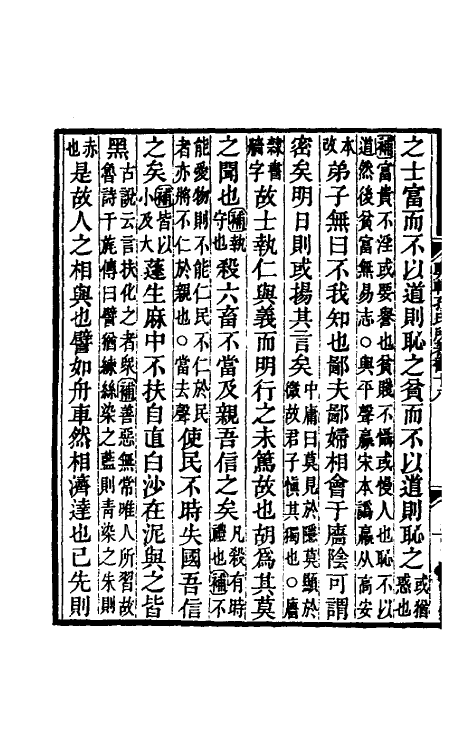 之士富而不以道則恥之貧而不以道則恥之或猶惑也
補富貴不淫或要譽也貧賤不懾或慢人也恥不以
道然後貧富無易志○與平聲羸宋本譌嬴从高安
本改弟子無曰不我知也鄙夫鄙婦相會于廧陰可謂
密矣明日則或揚其言矣中庸曰莫見於隱莫顯於微故君子愼其獨也○廧
隸書牆字故士執仁與義而明行之未篤故也胡爲其莫
之聞也補執守也殺六畜不當及親吾信之矣凡殺有時禮也補不
能愛物則不能仁民不仁於民者亦將不仁於親也○當去聲使民不時失國吾信
之矣補皆以小及大蓬生麻中不扶自直白沙在泥與之皆
黑古說云言扶化之者衆補善惡無常唯人所習故魯詩干旄傳曰譬猶練絲染之藍則青染之朱則
赤也是故人之相與也譬如舟車然相濟達也己先則